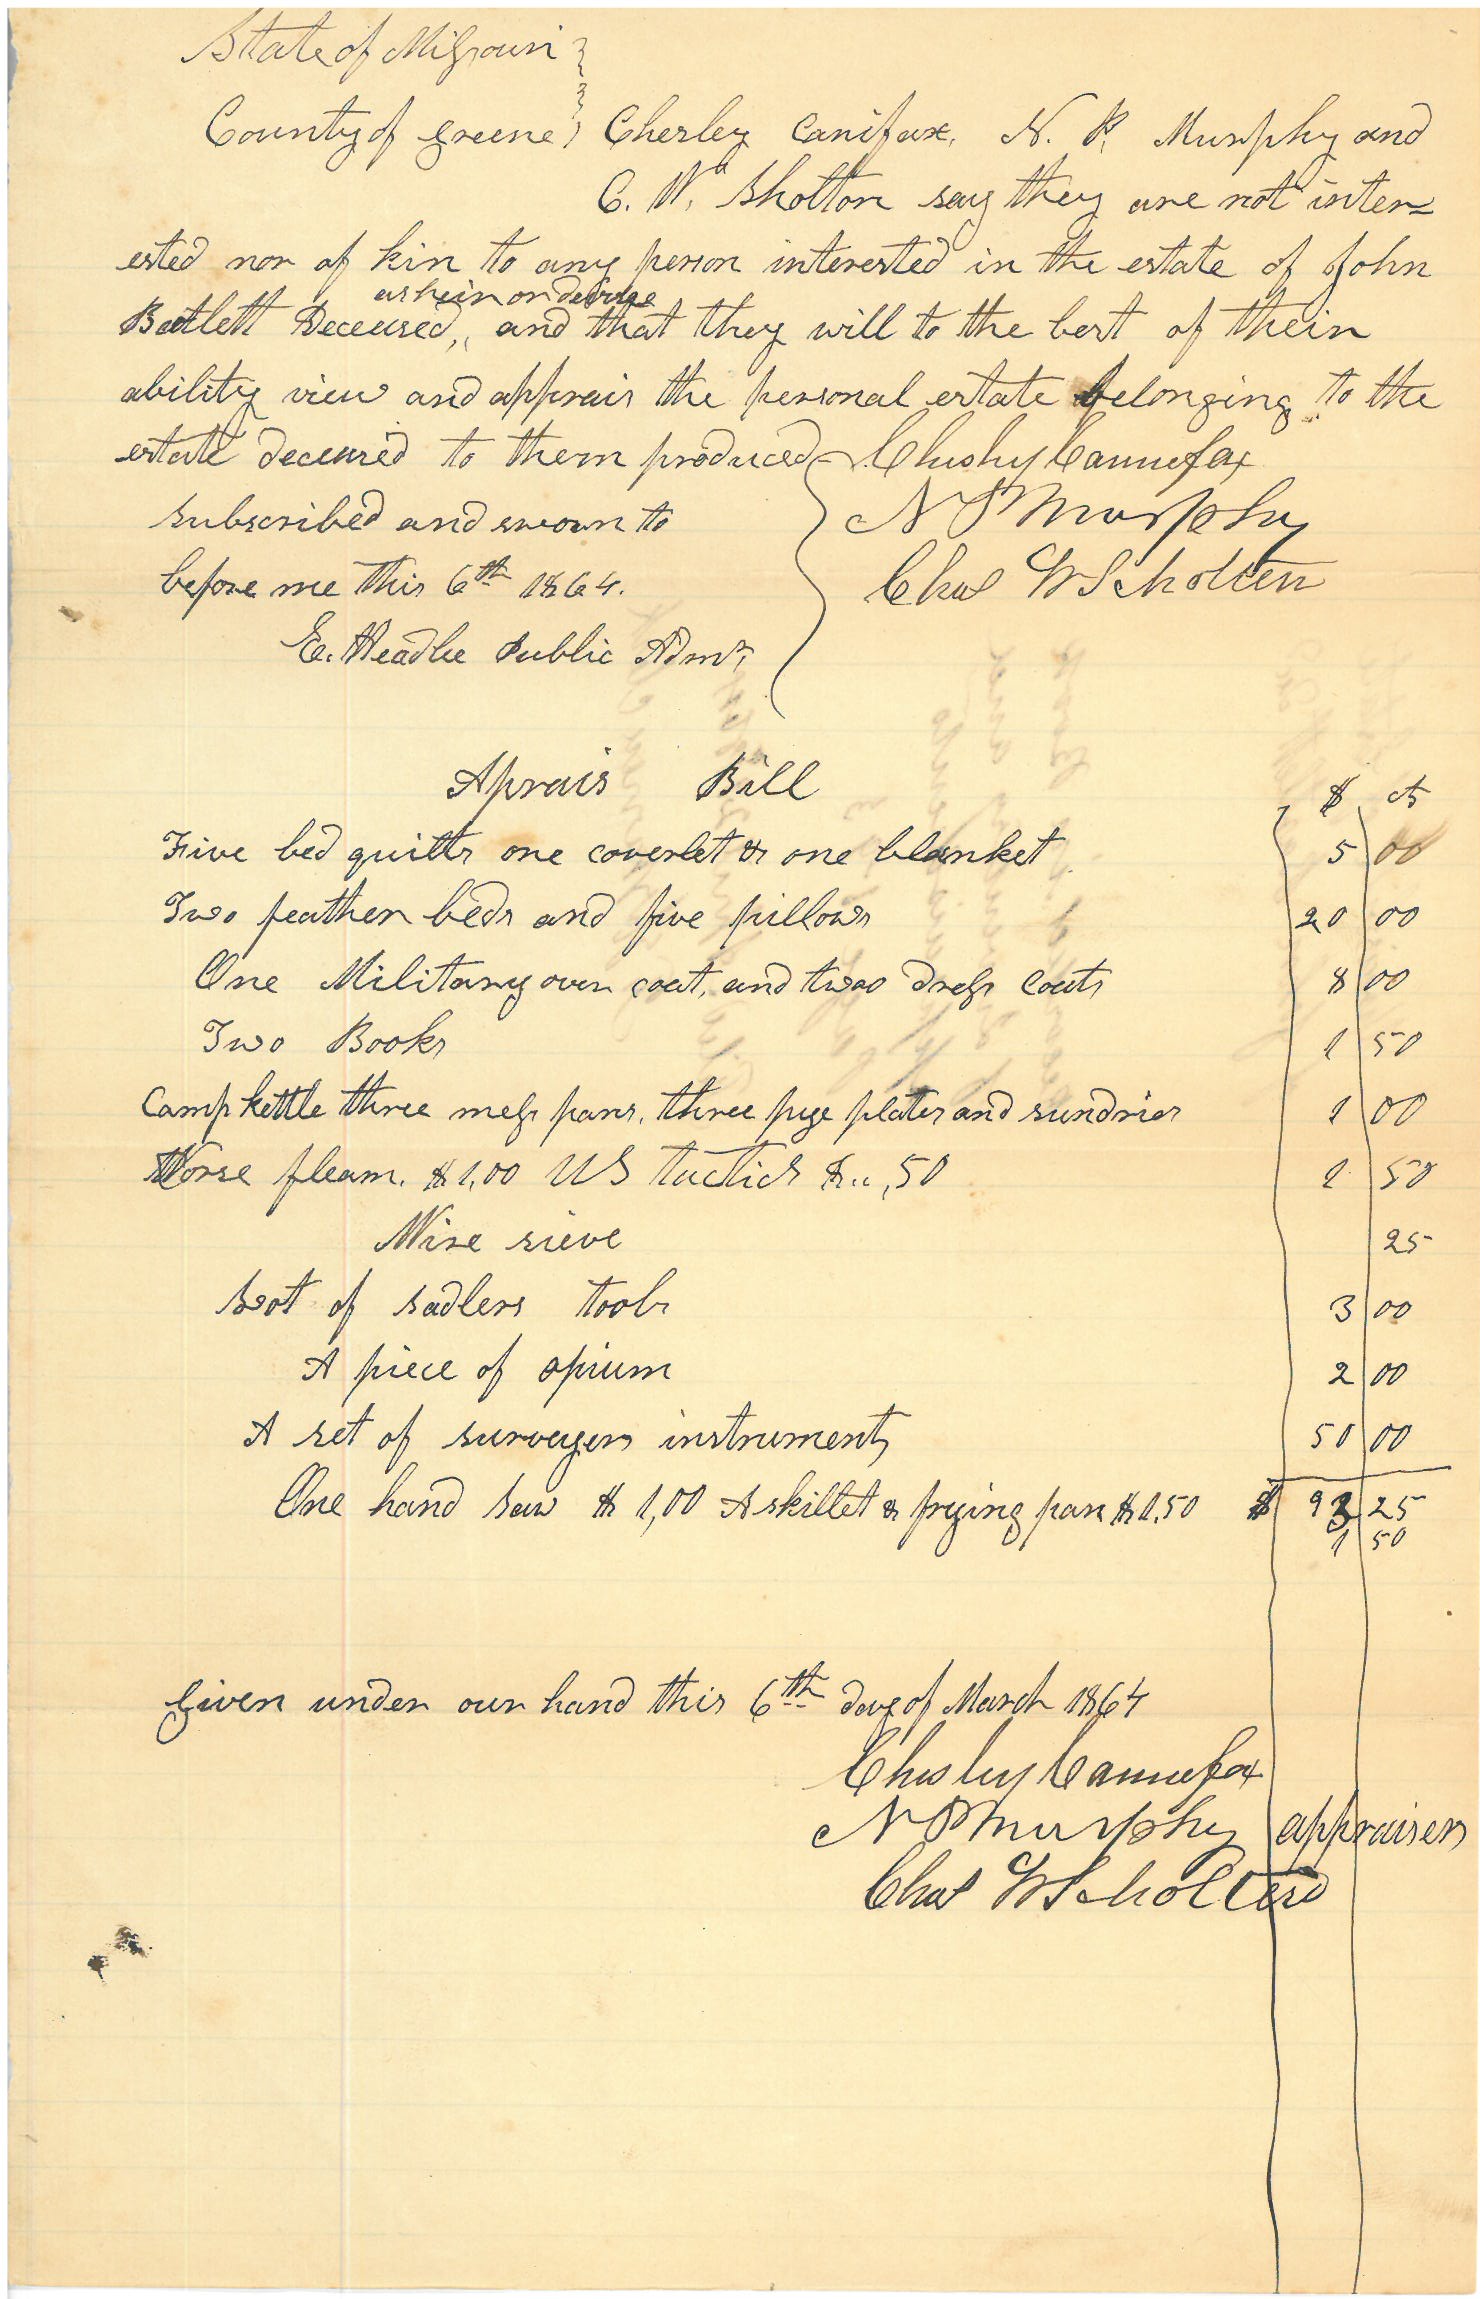 State of Missouri
County of Greene } Chesley Canifax, N. P. Murphy and
C. W. Sholton say they are not inter=
ested nor of kin to any person interested in the estate of John
as heir or devisee
Bartlett Deceased, and that they will to the best of their
ability view and apprais the personal estate belonging to the
estate deceased to them produced
Chesley Cannefax
subscribed and sworn to
N P Murphy
before me this 6th 1864.
Chas W Scholten
E. Headlee Public Admr,
Aprais Bill
$ cts
Five bed quilts one coverlet & one blanket 5 00
Two feather beds and five pillows 20 00
One Military over coat, and two dress coats 8 00
Two Books 1 50
Camp kettle three mess pans, three pye plates and sundries 1 00
Horse fleam. $1,00 US tactics $..,50 1 50
Wire sieve 25
Lot of sadlers tools 3 00
A piece of opium 2 00
A set of surveyors instruments 50 00
One hand saw $1,00 A skillet & frying pan $1.50 $ 93 25
1 50
Given under our hand this 6th day of March 1864
Chesley Cannefax
N P Murphy appraisers
Chas W Scholten